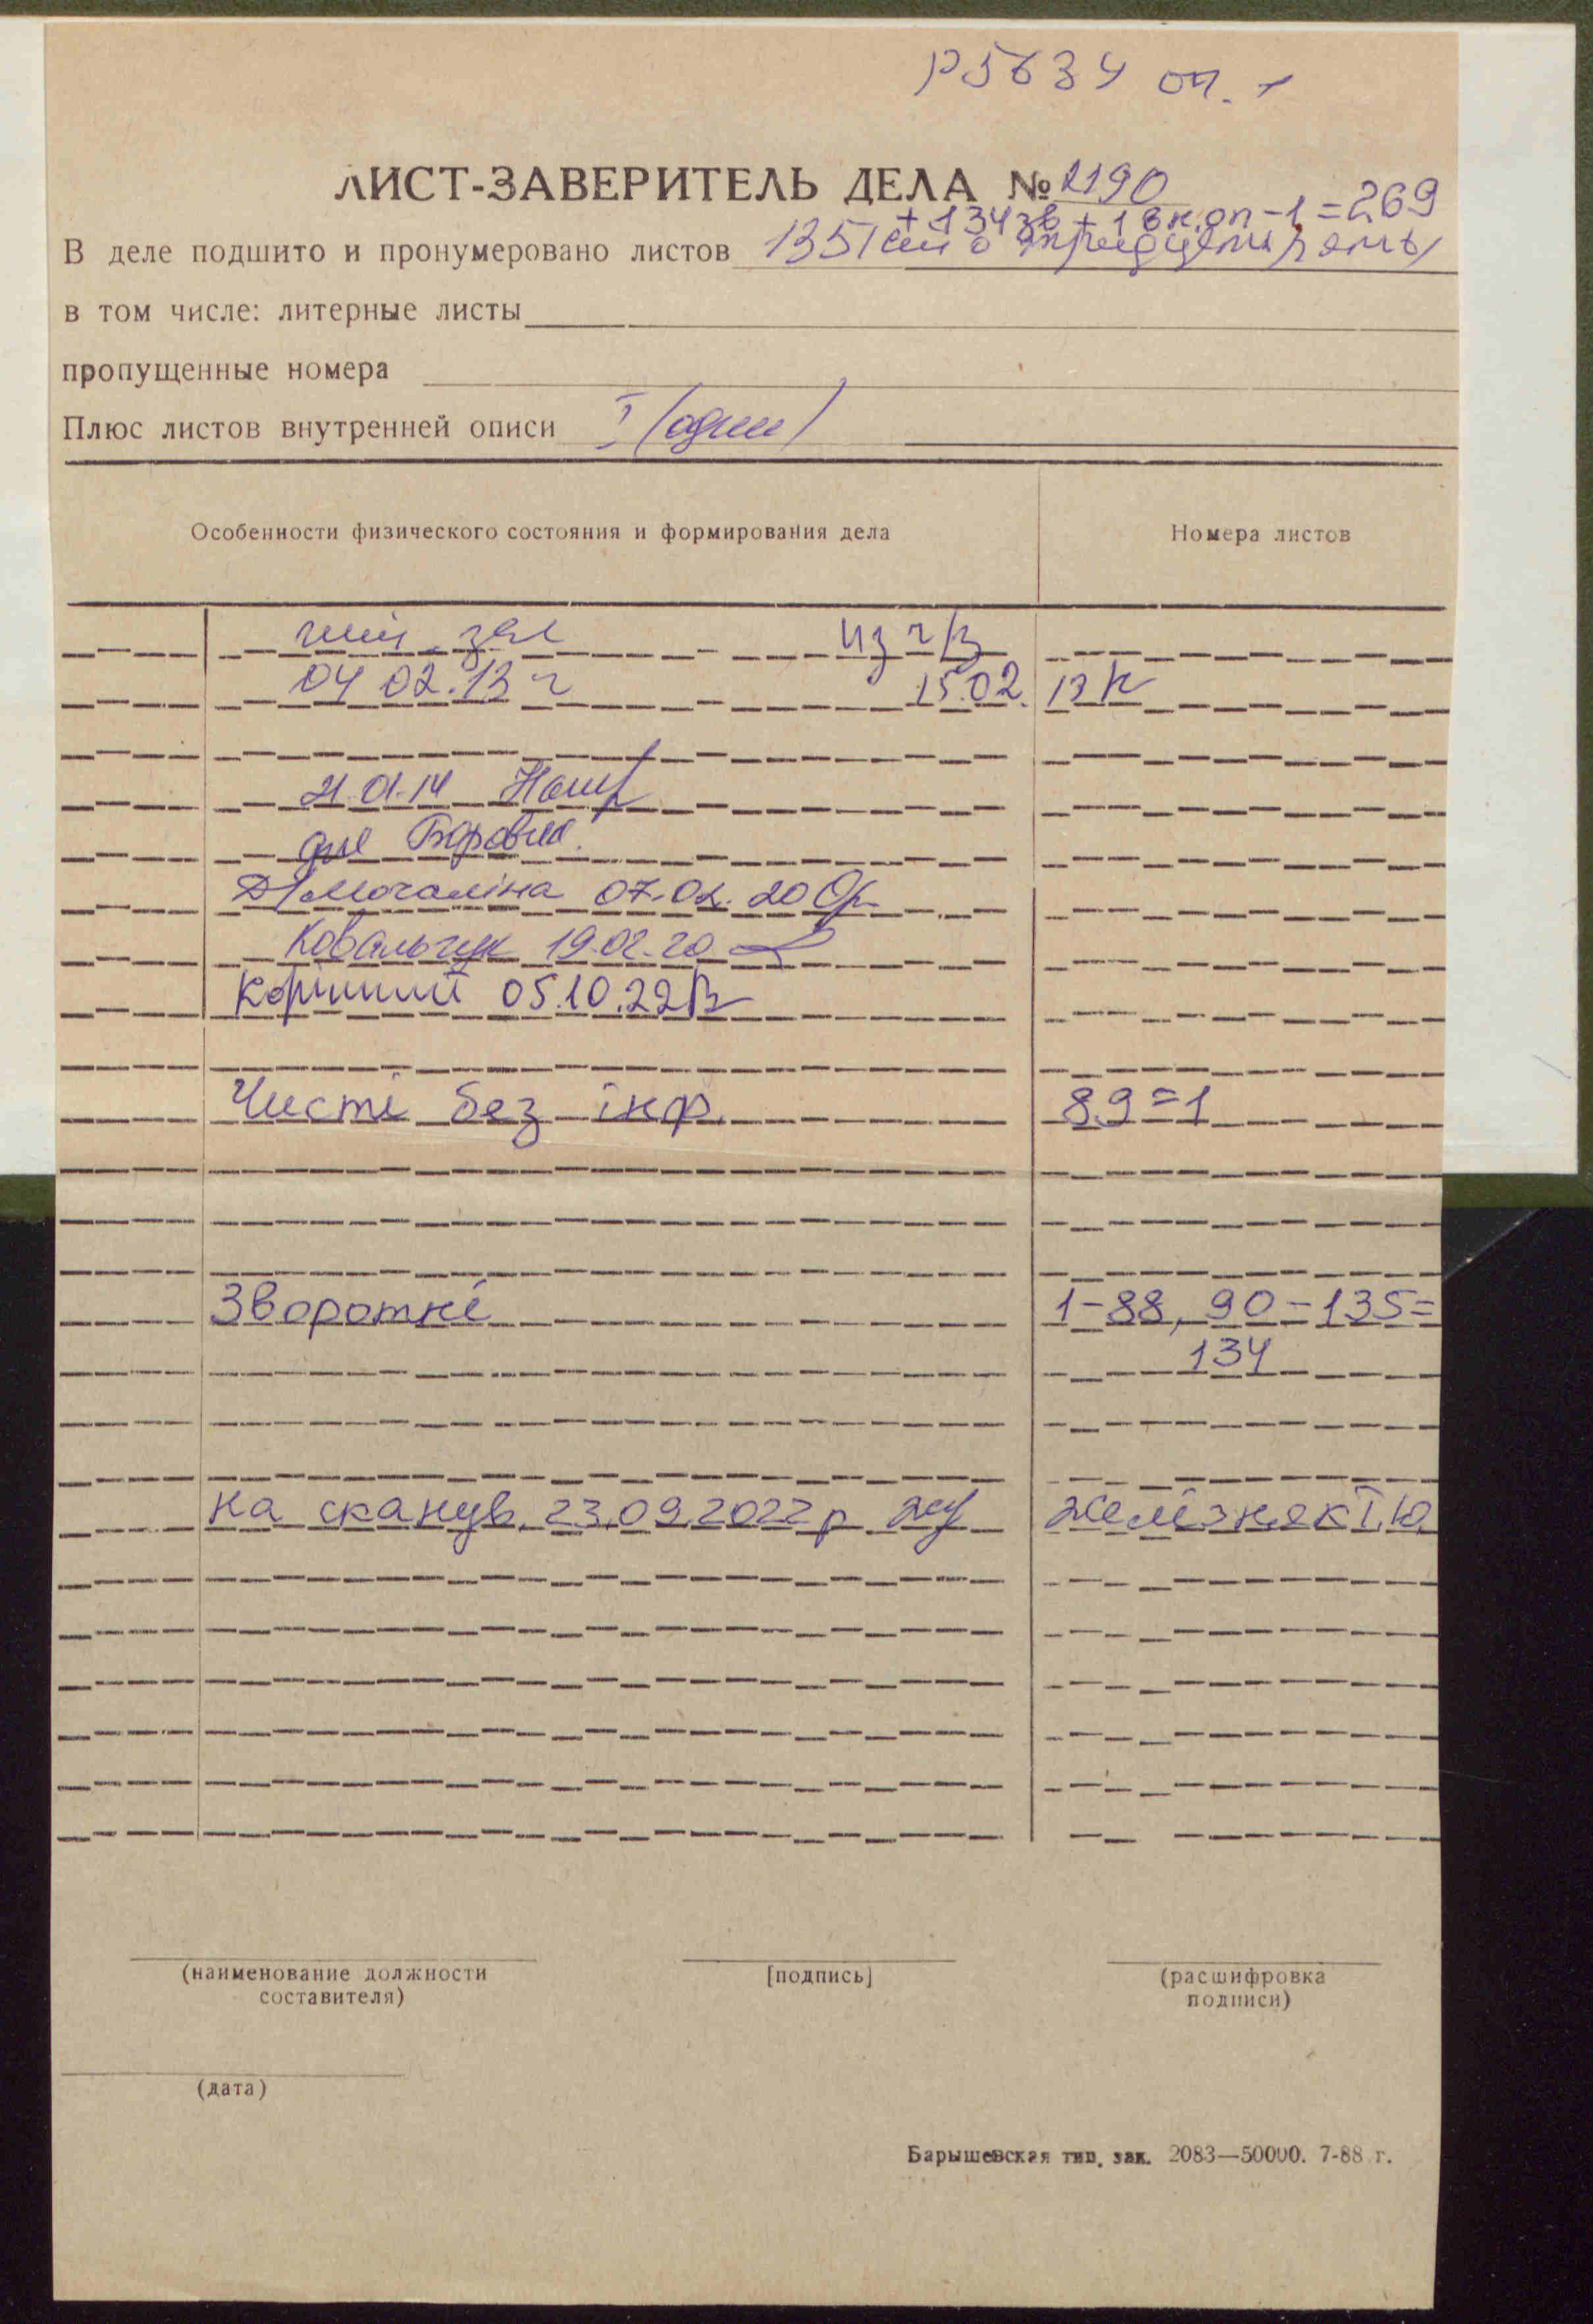 Р5634 оп. 1
ЛИСТ-ЗАВЕРИТЕЛЬ ДЕЛА № 2190
+ 134 зв + 1 вн.оп - 1 = 269
В деле подшито и пронумеровано листов 135 (сто тридцать пять)
в том числе: литерные листы
пропущенные номера
Плюс листов внутренней описи 1 (один)
Особенности физического состояния и формирования дела
Номера листов
04 02.13 г 15.02. 13
21.01.14
для
07.02.20
Ковальчук 19.02.20
05.10.22
Чисті без інф. 89=1
Зворотні 1-88, 90-135=
134
на сканув. 23.09.2022 р Желізняк І.Ю.
(наименование должности
составителя)
[подпись]
(расшифровка
подписи)
(дата)
Барышевская тип. зак. 2083—50000. 7-88 г.